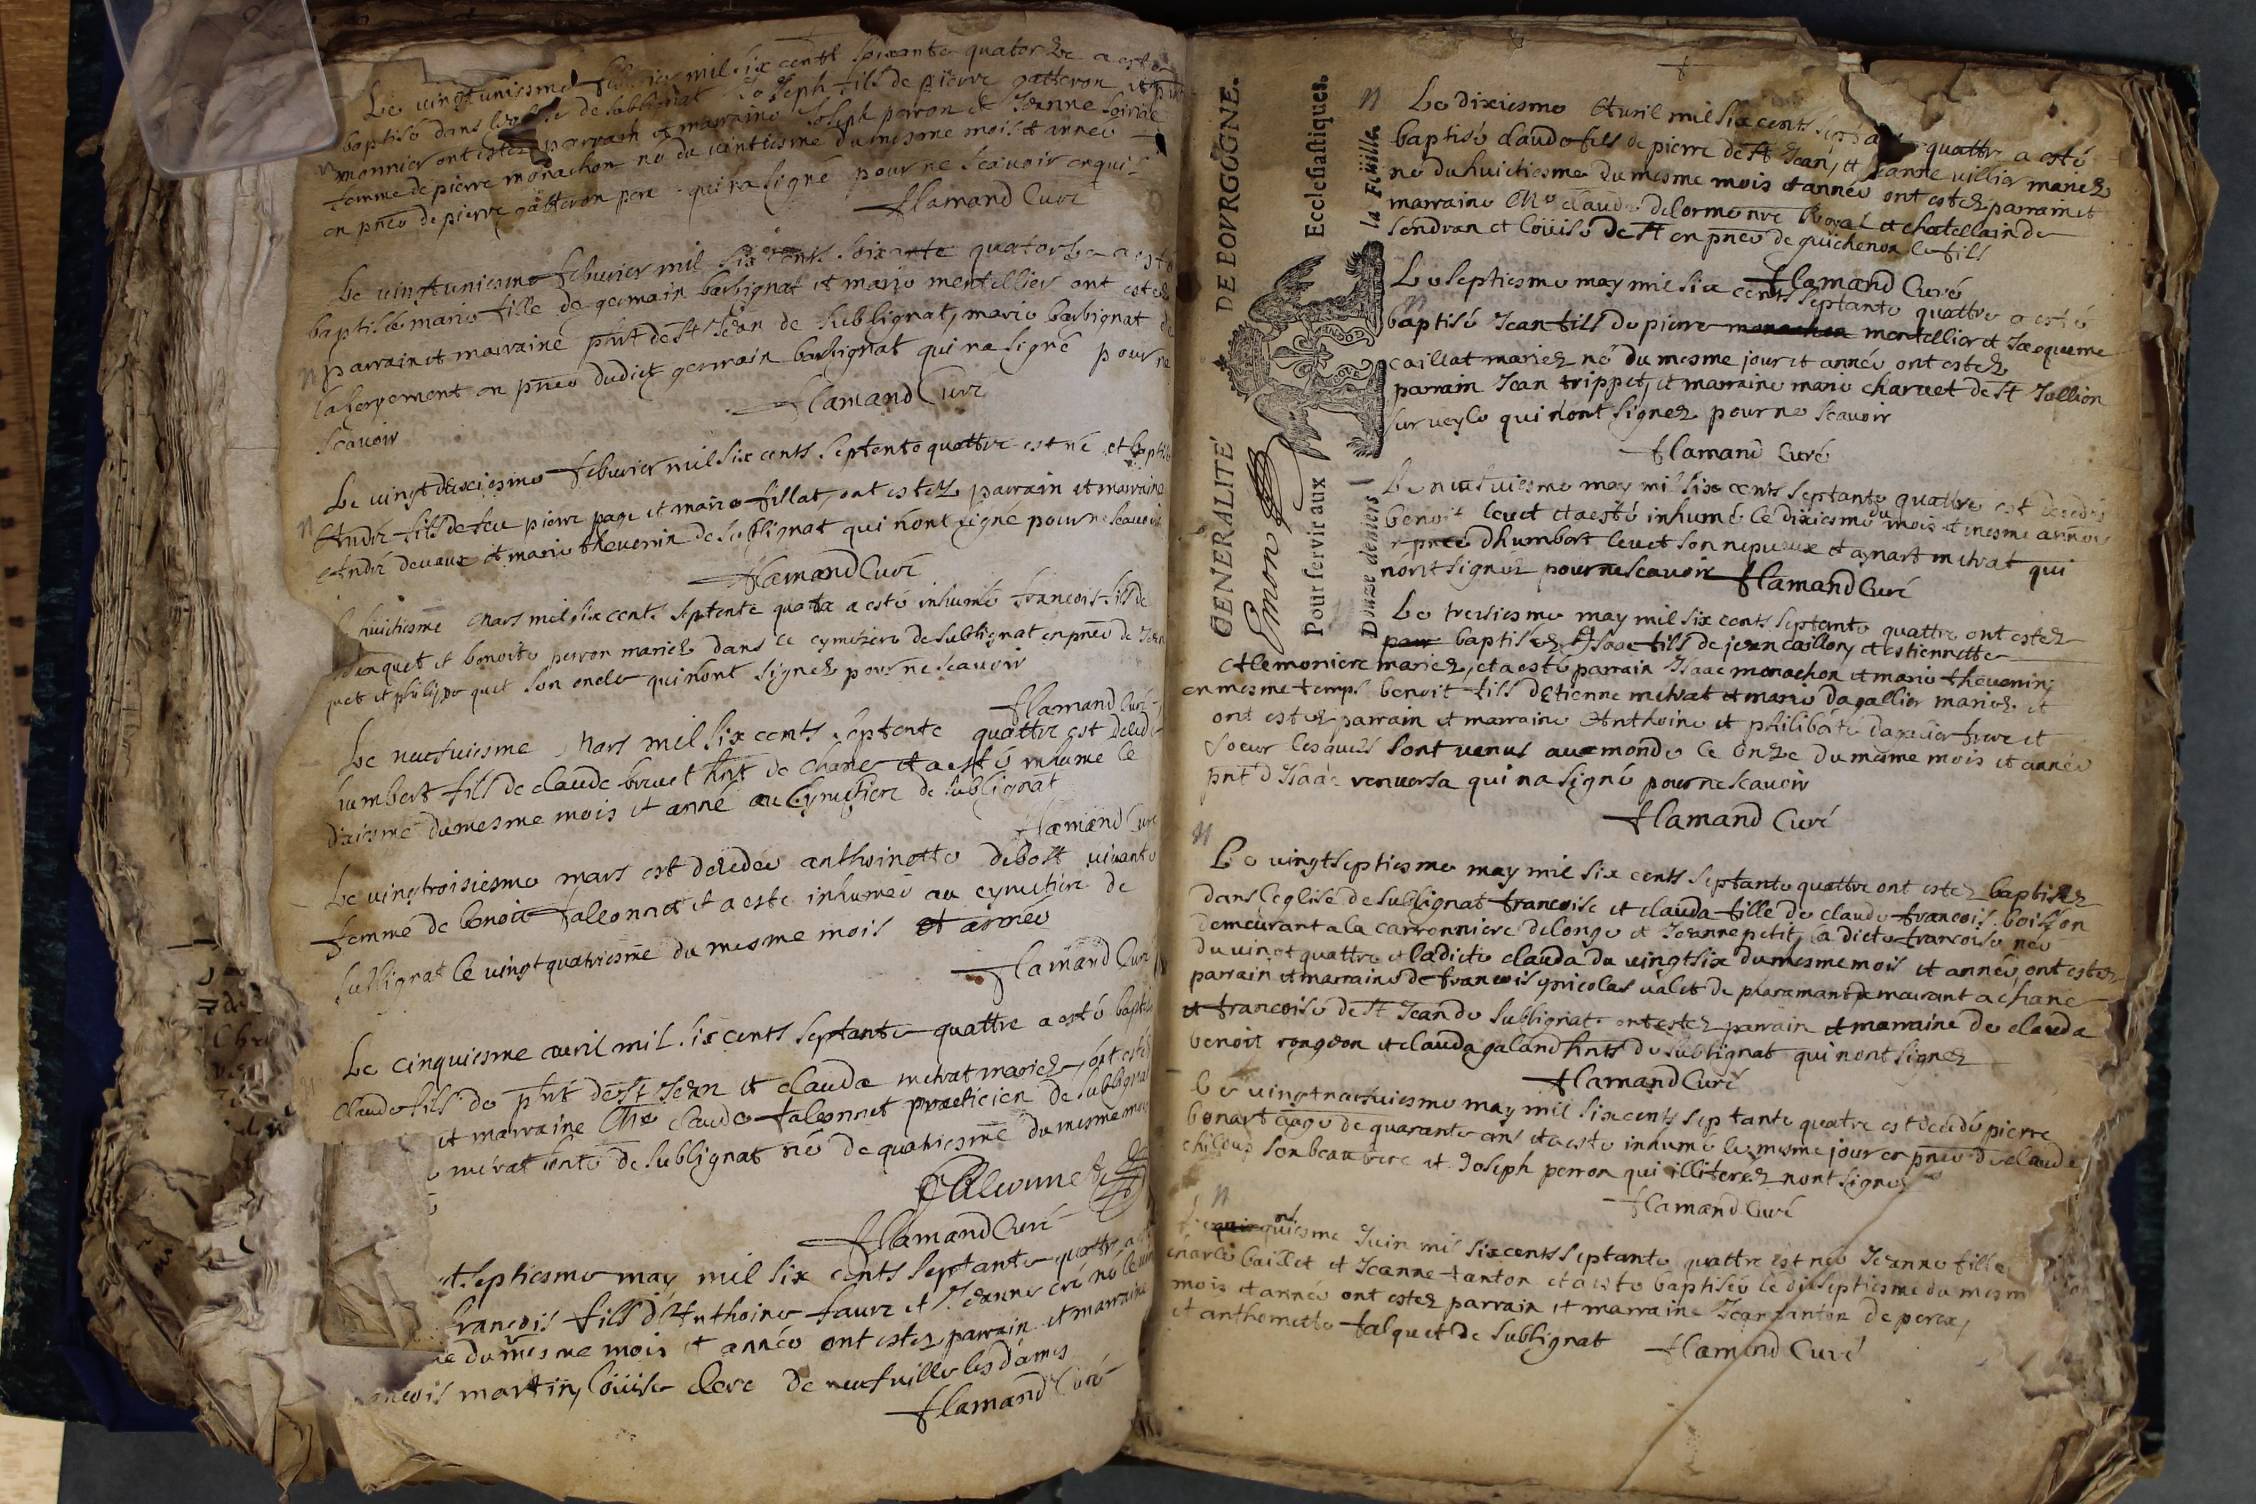 Le vingtunissme febvrier mil six centz soixante quatorze a esté
baptisé dans de sublignat Joseph fils de pierre gatteron et
monnier ont estez parrain et marraine Joseph perron et Jeanne
femme de pierre monachon né du vintiesme du mesme mois et année
en pñce de pierre gatteron pere qui na signé pour ne scavoir enquis
flamand Curé
Le vingtuniesme febvrier mil six cents soixante quatorze a esté
baptisée marie fille de germain barbignat et marie mentellier ont estez
parrain et marraine de st Jean de sublignat, marie barbignat
en pñce dudict germain barbignat qui na signé pour ne
scavoir
flamand Curé
Le vingtdeuxiesme febvrier mil six cents septente quattre est né et baptisé
André fils de feu pierre page et marie fillat, ont estez parrain et marraine
André devaux et marie thevenin de sublignat qui nont signé pour ne scavoir
flamand Curé
huictiesme mars mil six cents septente quatre a esté inhumé francois fils de
Jaquet et benoite perron mariez dans le cymetiere de sublignat en pñce de Jean
quet et philippe quet son oncle qui nont signez pour ne scavoir
flamand Curé
Le neufuiesme mars mil six cents septente quattre est decedé
humbert fils de claude bruet de chane et a esté inhumé le
dixiesme du mesme mois et année au Cymetiere de sublignat
flamand Curé
Le vingtroisiesme mars est decedée anthoinette debost vivante
femme de benoit falconnet et a este inhumée au cymetiere de
sublignat le vingtquatriesme du mesme mois et année
flamand Curé
Le cinquiesme avril mil six cents septante quattre a esté baptisé
claude fils de de st Jean et clauda mevat mariez, ont estez
et marraine Me claude falconnet practicien de sublignat
de sublignat né de quatriesme du mesme mois
falconnet
flamand Curé
septiesme may mil six cents septante quattre a
francois fils d'Anthoine faure et Jeanne né le
du mesme mois et année ont estez parrain et marraine
martin, Louise clerc de neufuille les dames
flamand Curé
GENERALITÉ DE BOVRGOGNE.
Emon
Pour servir aux Ecclesiastiques.
Douze deniers la Feüille.
Le dixiesme Avril mil six cents quattre a esté
baptisé claude fils de pierre de st Jean, et Jeanne villier mariez
né du huictiesme du mesme mois et année ont estez parrain et
marraine Me claude delorme nre Royal et chatellain de
sendran et Louise de st en pñce de guichenon le fils
flamand Curé
Le septiesme may mil six cents septante quattre a esté
baptisé Jean fils de pierre monachon mentellier et Jacqueme
caillat mariez né du mesme jour et année ont estez
parrain Jean trippet, et marraine marie charvet de st Jullien
sur veyle qui nont signez pour ne scavoir
flamand Curé
Le neufuiesme may mil six cents septante quattre est decedé
benoit levet et a esté inhumé le dixiesme du mois et mesme année
pñce d'humbert levet son nepveux et aynart mevat qui
nont signez pour ne scavoir flamand Curé
Le tresiesme may mil six cents septante quattre ont estez
baptisez, Isaac fils de jean caillon, et estiennette
lemoniere mariez, et a esté parrain Isaac monachon et marie thevenin,
en mesme temps benoit fils d'Etienne mevat et marie dagallier mariez et
ont estez parrain et marraine Anthoine et philiberte frere et
soeur lesquels sont venus au monde le onze du mesme mois et année
pnt d'Isaac renversa qui na signé pour ne scavoir
flamand Curé
Le vingtseptiesme may mil six cents septante quattre ont estez baptisez
dans l'eglise de sublignat francoise et clauda fille de claude francois boisson
demeurant a la carronniere delonge et Jeanne petit, la dicte francoise née
du vingt quattre et ladicte clauda du vingtsix du mesme mois et année, ont estez
parrain et marraine de francois nicolas valet de demeurant a chane
et francoise de st Jean de sublignat ont estez parrain et marraine de clauda
benoit rongeon et clauda galand de sublignat qui nont signez
flamand Curé
Le vingtneufuiesme may mil six cents septante quatre est decedé pierre
benart aagé de quarante ans et a esté inhumé le mesme jour en pñce de claude
chiloup son beau frere et Joseph perron qui illiterez nont signez
flamand Curé
Juin mil six cents septante quattre est née Jeanne fille
charle baillet et Jeanne tanton et a esté baptisée le dixseptiesme du mesme
mois et année ont estez parrain et marraine Jean tanton de perex,
et anthomette falquet de sublignat flamand Curé